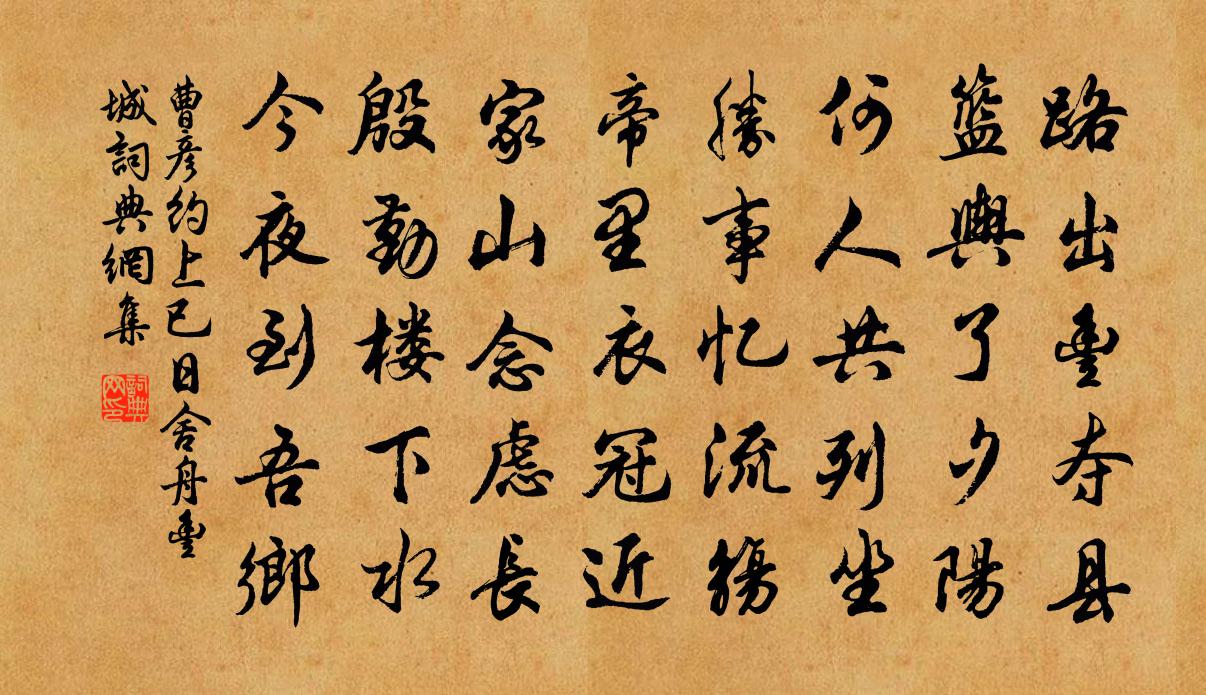 路出豐夺县
籃輿了夕陽
何人共列坐
勝事忆流觴
帝里衣冠近
家山念慮長
殷勤楼下水
今夜到吾鄉
曹彥約上巳日舍舟豐
城詞典網集
詞典
网印